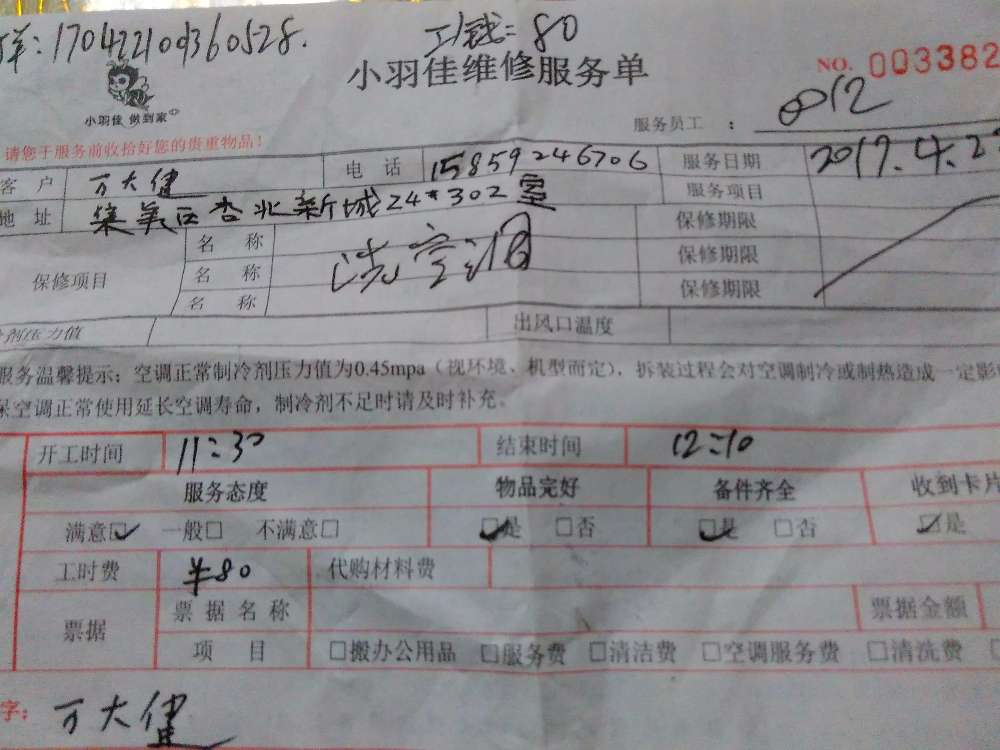 17042210936 0528. 工钱=80
小羽佳维修服务单 NO. 003382
小羽佳 做到家
服务员工 : 012
请您于服务前收拾好您的贵重物品!
客 户 万大健 电 话 15859246706 服务日期 2017.4.2
地 址 集美区杏北新城24#302室 服务项目
保修项目 名 称 洗空调 保修期限
名 称 保修期限
名 称 保修期限
剂压力值 出风口温度
服务温馨提示:空调正常制冷剂压力值为0.45mpa(视环境、机型而定),拆装过程会对空调制冷或制热造成一定影
保空调正常使用延长空调寿命,制冷剂不足时请及时补充。
开工时间 11:30 结束时间 12:10
服务态度 物品完好 备件齐全 收到卡片
满意☑ 一般□ 不满意□ ☑是 □否 ☑是 □否 ☑是
工时费 ¥80 代购材料费
票据 票据名称 票据金额
项 目 □搬办公用品 □服务费 □清洁费 □空调服务费 □清洗费
字: 万大健